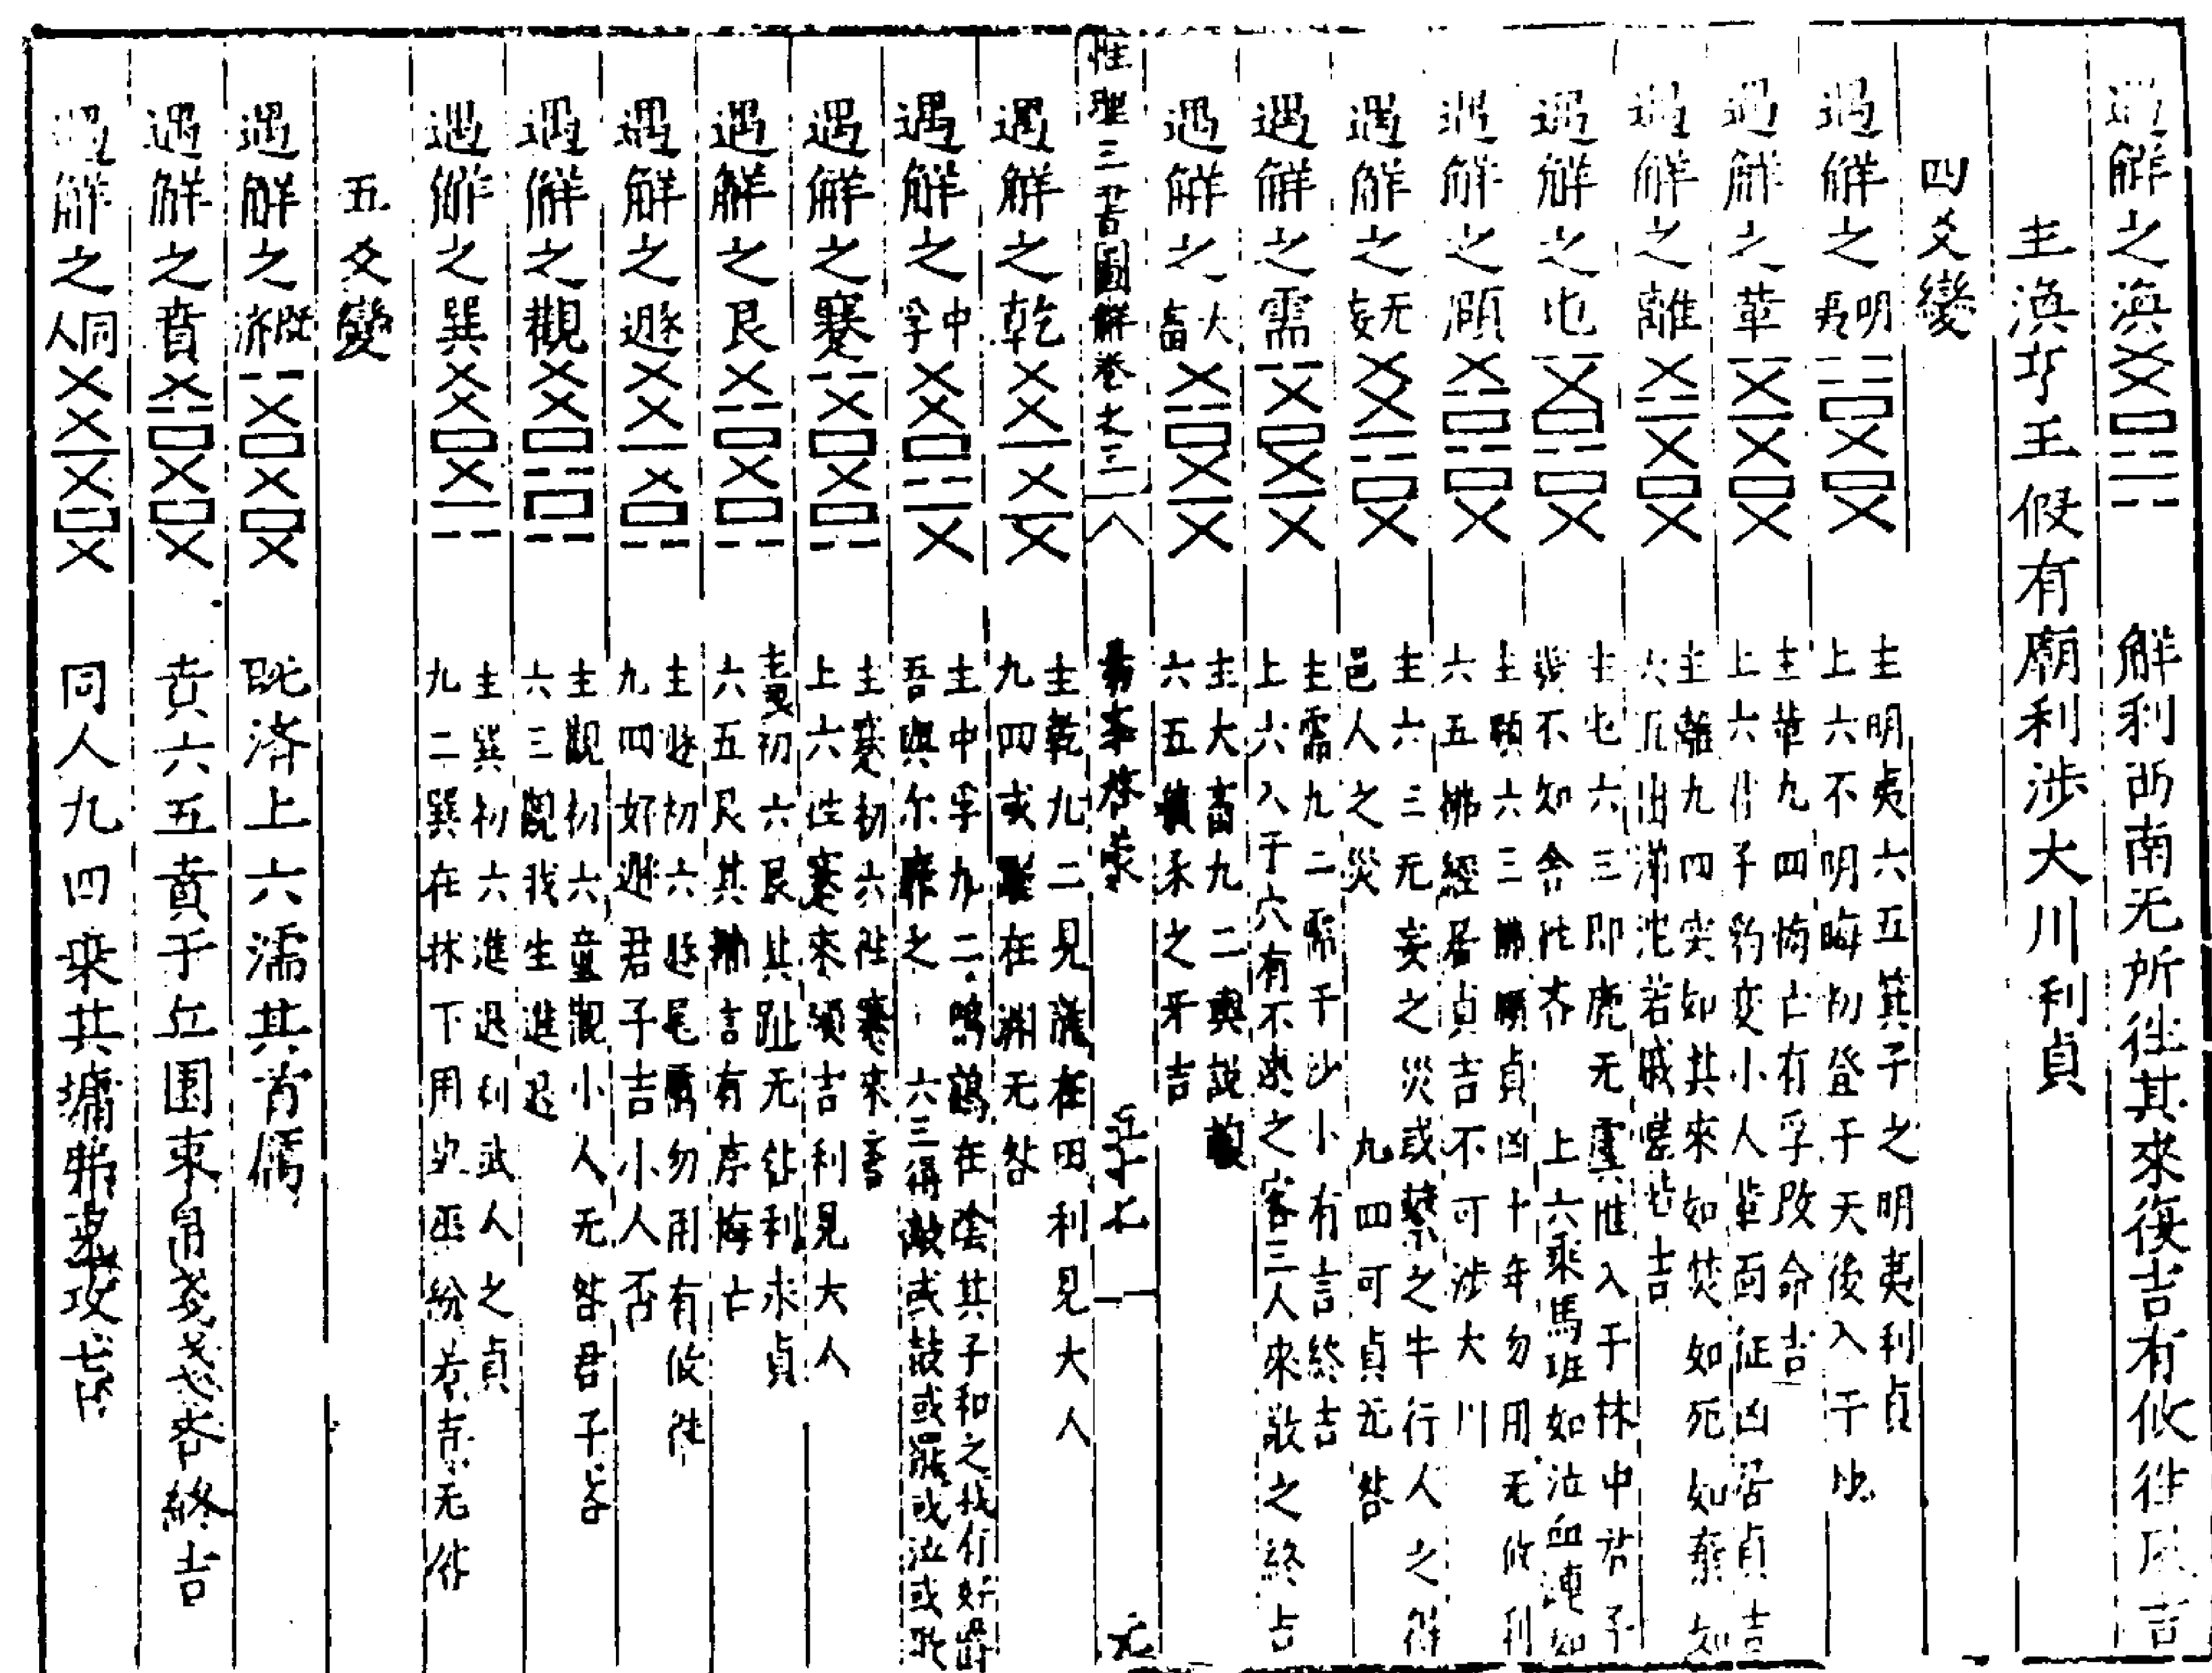 遇解之渙 解利西南无所往其來復吉有攸往夙吉
主渙亨王假有廟利涉大川利貞
四爻變
遇解之明夷 主明夷六五箕子之明夷利貞
上六不明晦初登于天後入于地
遇解之革 主革九四悔亡有孚改命吉
上六君子豹变小人革面征凶居貞吉
遇解之離 主離九四突如其來如焚如死如棄如
六五出涕沱若戚嗟若吉
遇解之屯 主屯六三即鹿无虞惟入于林中君子
幾不如舍往吝 上六乘馬班如泣血漣如
遇解之頤 主頤六三拂頤貞凶十年勿用无攸利
六五拂經居貞吉不可涉大川
遇解之无妄 主六三无妄之災或繫之牛行人之得
邑人之災 九四可貞无咎
遇解之需 主需九二需于沙小有言終吉
上六入于穴有不速之客三人來敬之終吉
遇解之大畜 主大畜九二輿説輹
六五豶豕之牙吉
性理三書圖解卷之三 易李啓蒙 五十七 元
遇解之乾 主乾九二見龍在田利見大人
九四或躍在淵无咎
遇解之中孚 主中孚九二鳴鶴在陰其子和之我有好爵
吾與尔靡之 六三得敵或鼓或罷或泣或歌
遇解之蹇 主蹇初六往蹇來譽
上六往蹇來碩吉利見大人
遇解之艮 主艮初六艮其趾无咎利永貞
六五艮其輔言有序悔亡
遇解之遯 主遯初六遯尾厲勿用有攸往
九四好遯君子吉小人否
遇解之觀 主觀初六童觀小人无咎君子吝
六三觀我生進退
遇解之巽 主巽初六進退利武人之貞
九二巽在牀下用史巫紛若吉无咎
五爻變
遇解之既濟 既済上六濡其首厲
遇解之賁 賁六五賁于丘園束帛戔戔吝終吉
遇解之同人 同人九四乘其墉弗克攻吉